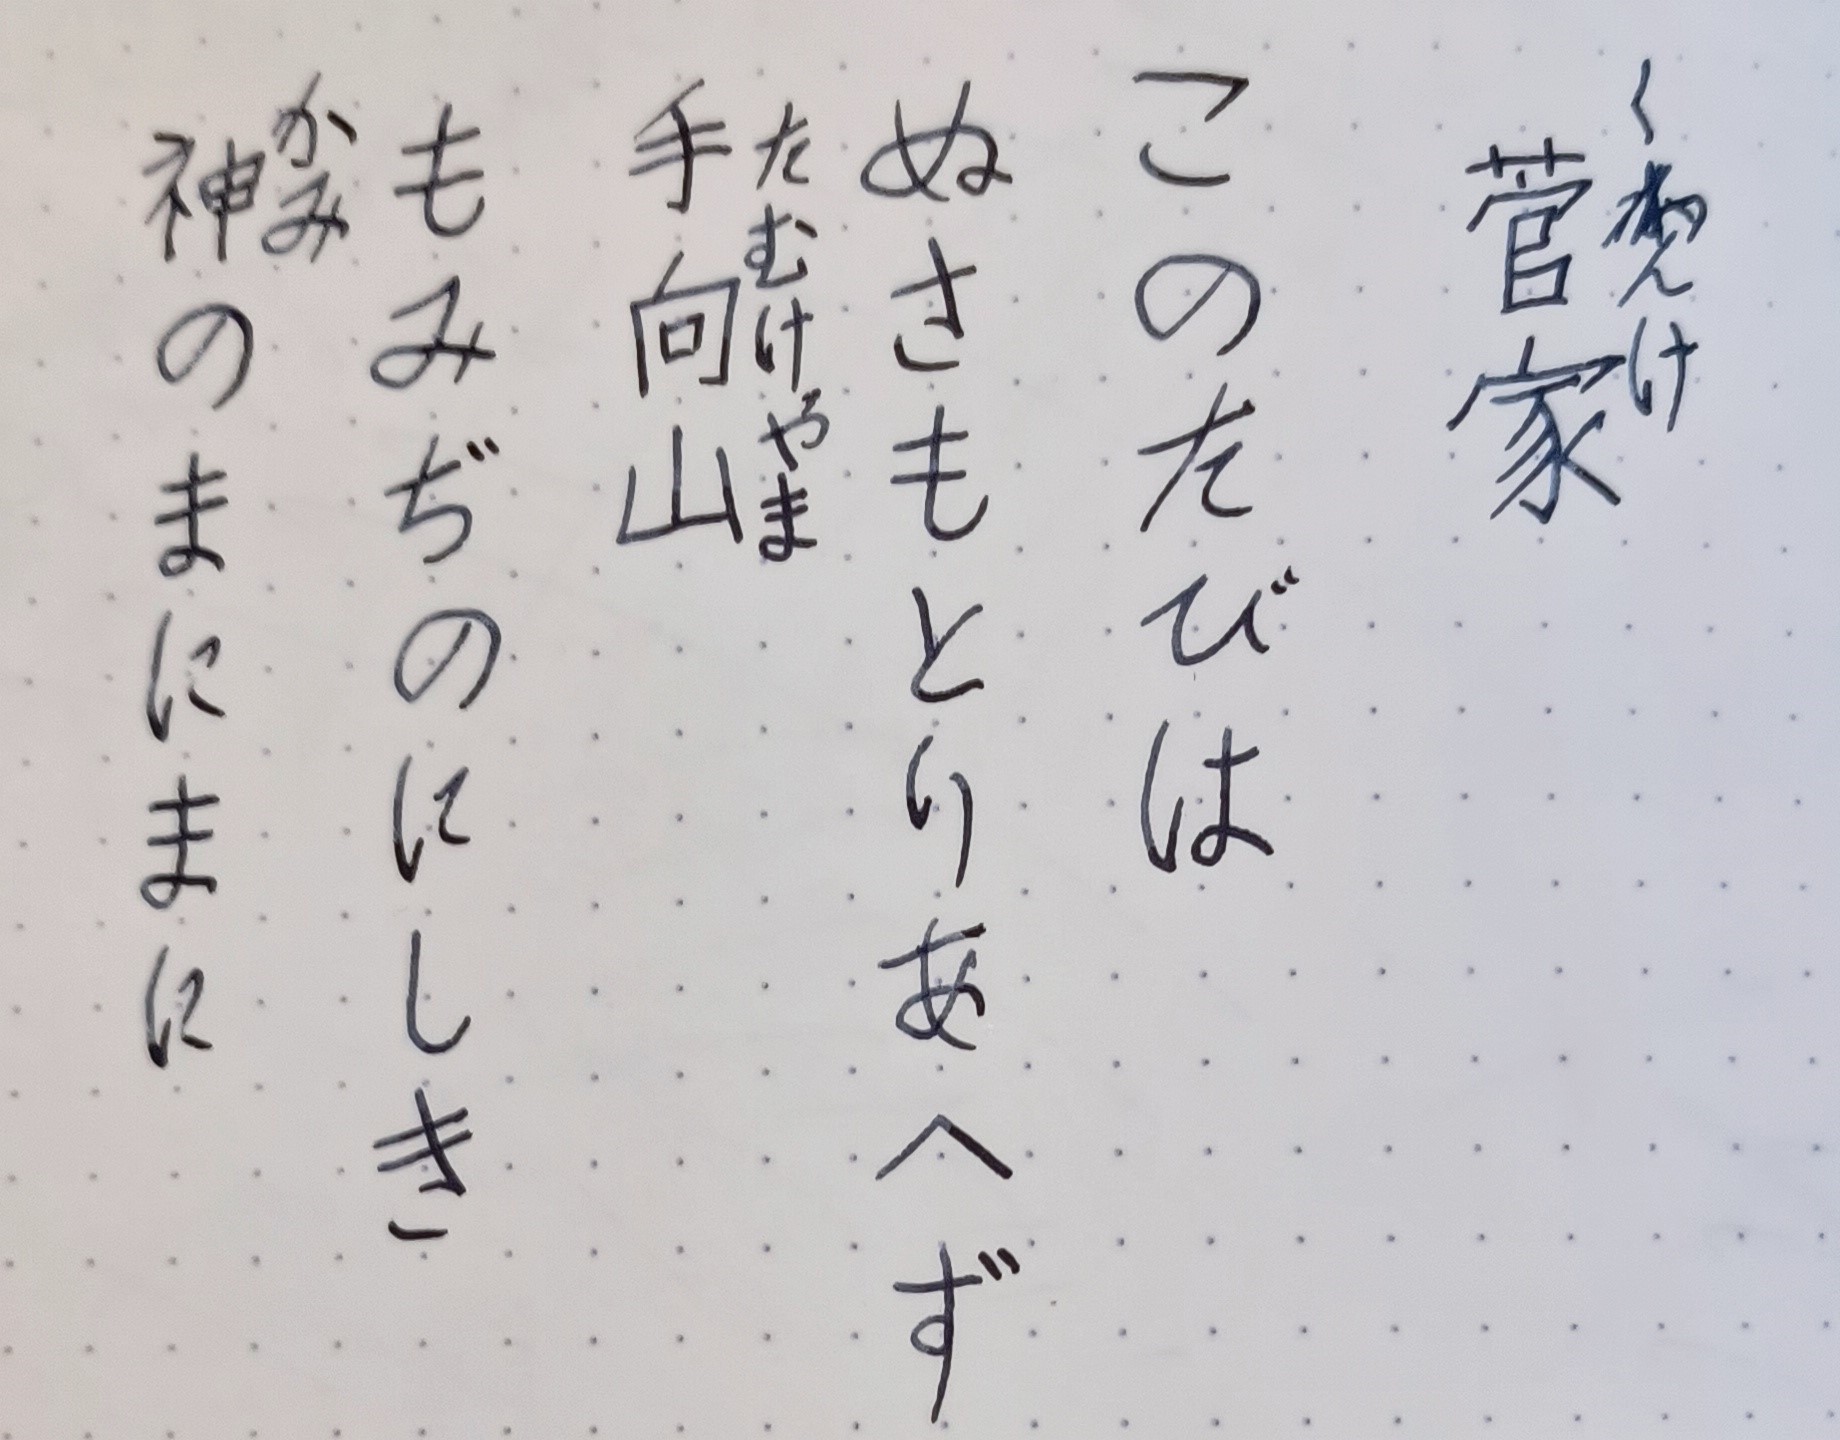 くわんけ
菅家
このたびは
ぬさもとりあへず
たむけやま
手向山
もみぢのにしき
かみ
神のまにまに